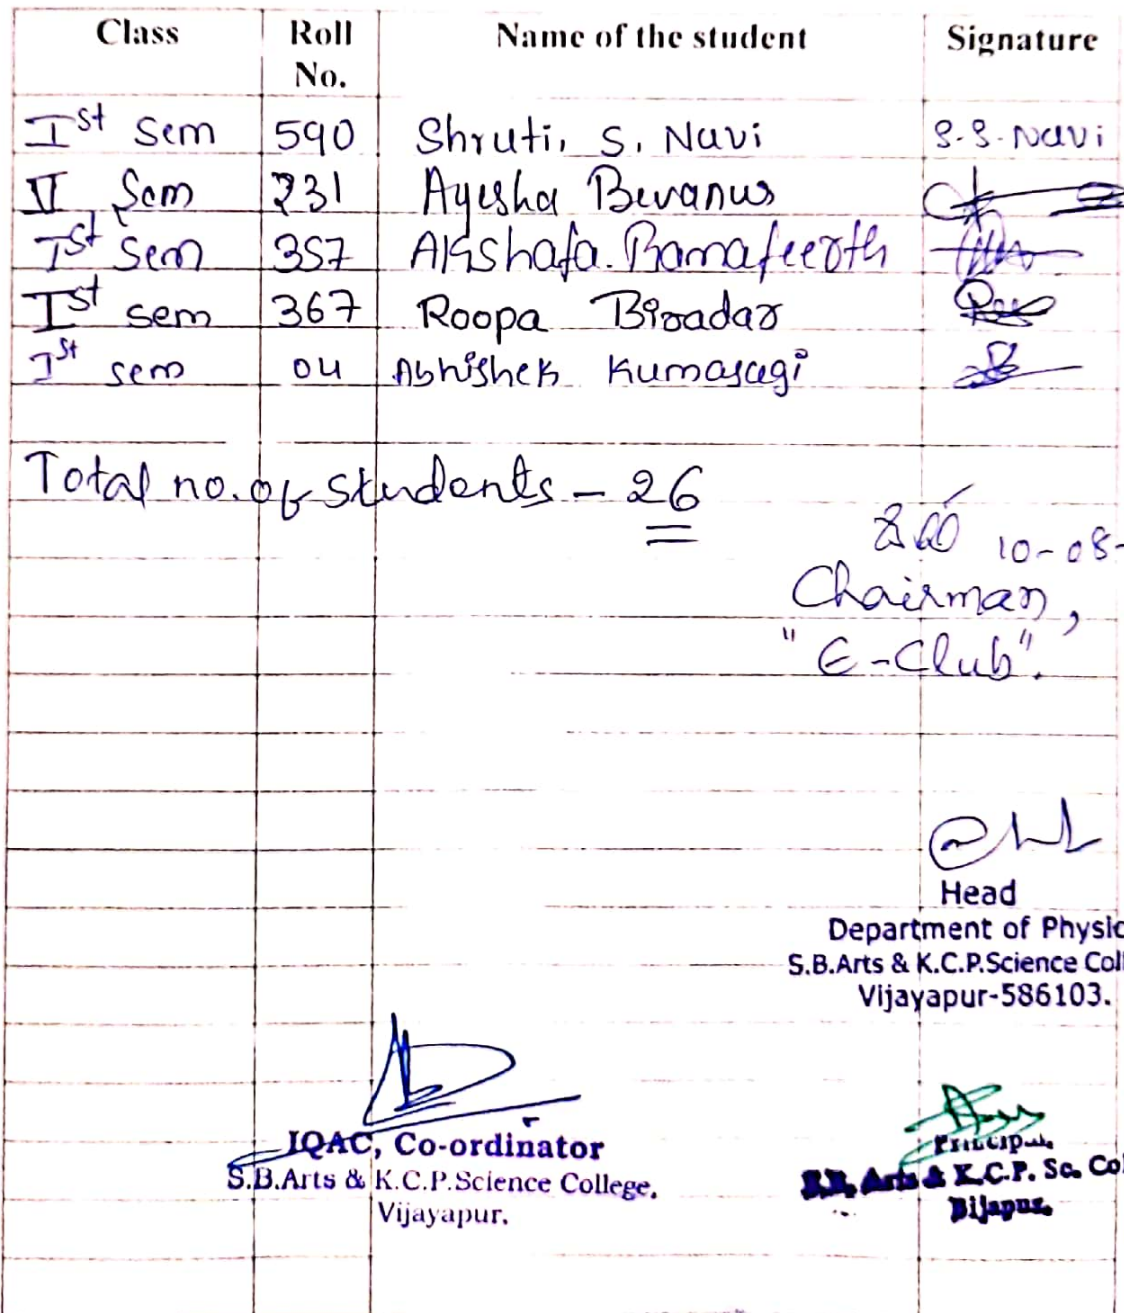 Class Roll No. Name of the student Signature
Ist Sem 590 Shruti. S. Navi S.S.Navi
VI Sem 231 Ayesha Bevanus
Ist Sem 357 Akshafa. Bamafeerth
Ist sem 367 Roopa Biradar
Ist sem 04 Abhishek Kumasagi
Total no. of students - 26
10-08-
Chairman,
"E-Club".
Head
Department of Physic
S.B.Arts & K.C.P.Science Coll
Vijayapur-586103.
IQAC, Co-ordinator
S.B.Arts & K.C.P.Science College,
Vijayapur.
Principal,
S.B. Arts & K.C.P. Sc. Col
Bijapur.